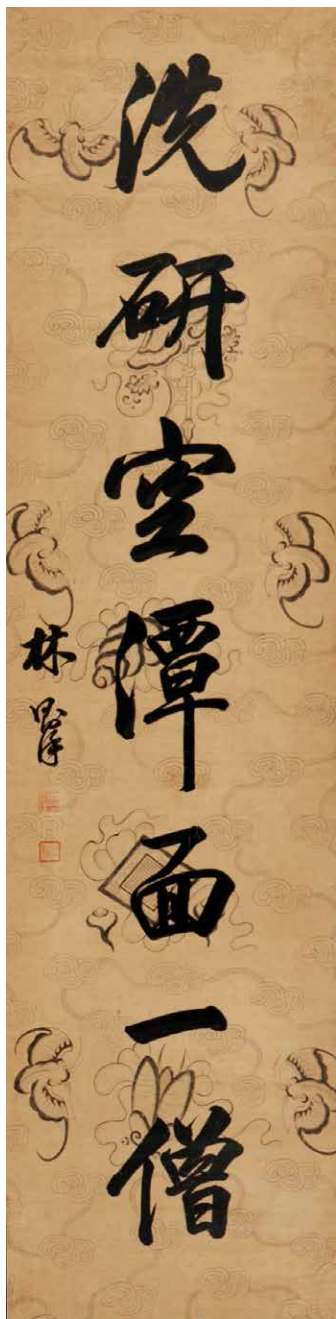 洗研空潭面一僧
林